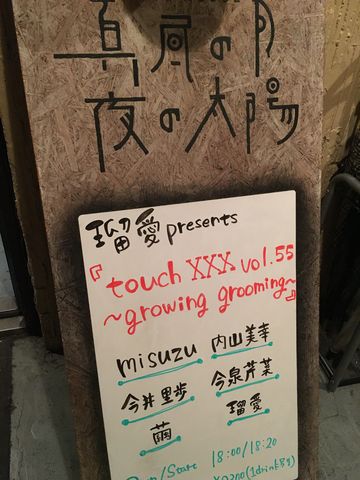 真昼の月
夜の太陽
瑠愛 presents
『touch XXX vol.55
～growing grooming～』
misuzu 内山美幸
今井里歩 今泉芹菜
繭 瑠愛
Open/Start 18:00/18:20